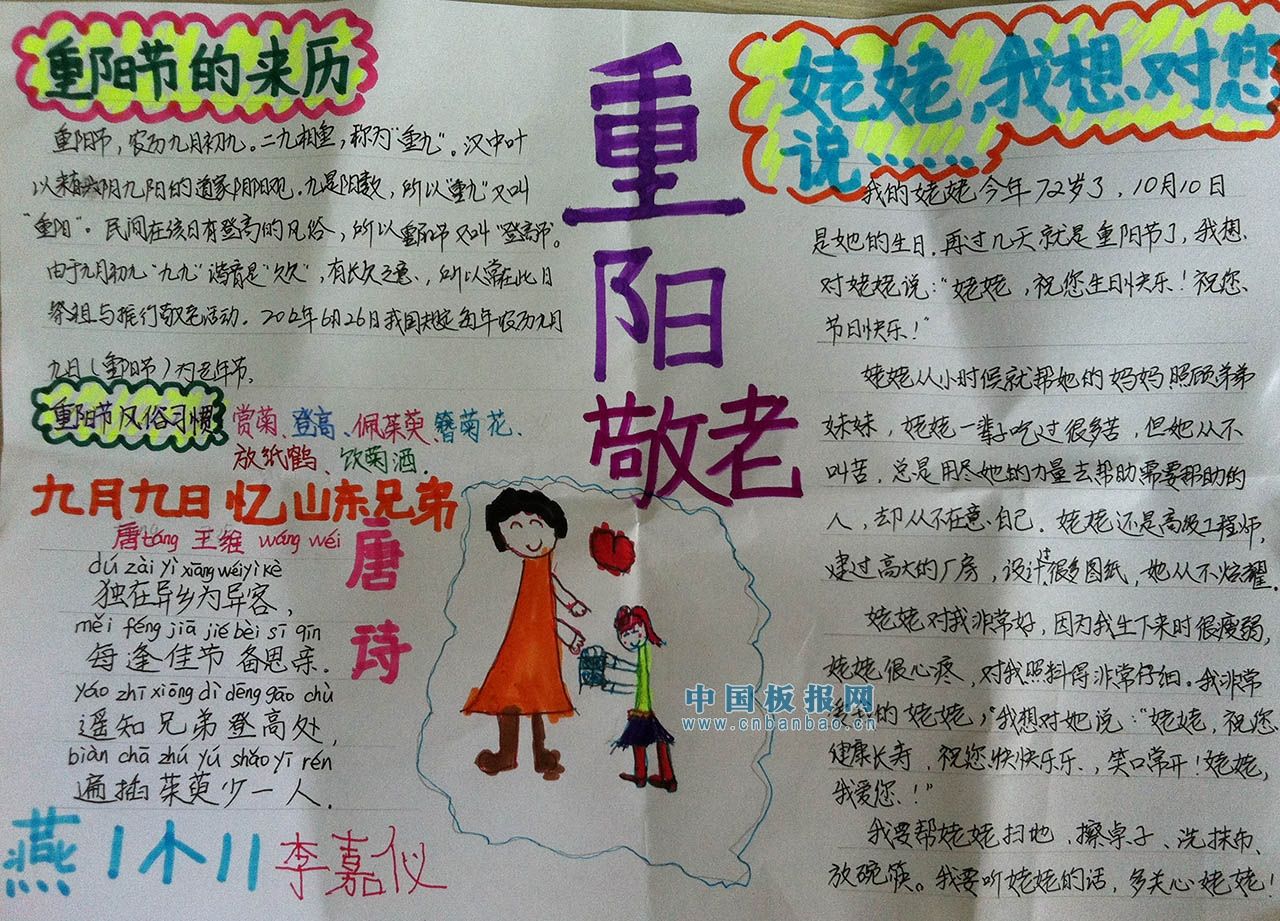 重阳节的来历
重阳节，农历九月初九。二九相重，称为"重九"。汉中叶
以来 阴九阳的道家阴阳观。九是阳数，所以"重九"又叫
"重阳"。民间在该日有登高的风俗，所以重阳节又叫"登高节"。
由于九月初九"九九"谐音是"久久"，有长久之意，所以常在此日
祭祖与推行敬老活动。2012年6月26日我国 每年农历九月
九日（重阳节）为老年节。
重阳节风俗习惯
赏菊、登高、佩茱萸、簪菊花、
放纸鹤、饮菊酒.
九月九日忆山东兄弟
唐táng 王维 wáng wéi
唐诗
dú zài yì xiāng wéi yì kè
独在异乡为异客，
měi féng jiā jié bèi sī qīn
每逢佳节备思亲.
yáo zhī xiōng dì dēng gāo chù
遥知兄弟登高处，
biàn chā zhú yú shǎo yī rén
遍插茱萸少一人.
燕小小川
李嘉仪
重
阳
敬老
中国板报网
www.cnbanbao.cn
姥姥，我想对您
说……
我的姥姥今年72岁了，10月10日
是她的生日.再过几天就是重阳节了，我想
对姥姥说："姥姥，祝您生日快乐！祝您
节日快乐！"
姥姥从小时候就帮她的妈妈照顾弟弟
妹妹，姥姥一辈子吃过很多苦，但她从不
叫苦，总是用尽她的力量去帮助需要帮助的
人，却从不在意自己.姥姥还是高级工程师，
建过高大的厂房，设计过很多图纸，她从不炫耀.
姥姥对我非常好，因为我生下来时很瘦弱，
姥姥很心疼，对我照料得非常仔细。我非常
的姥姥，"我想对她说："姥姥，祝您
健康长寿，祝您快快乐乐，笑口常开！姥姥，
我爱您！"
我要帮姥姥扫地、擦桌子、洗抹布、
放碗筷。我要听姥姥的话，多关心姥姥！